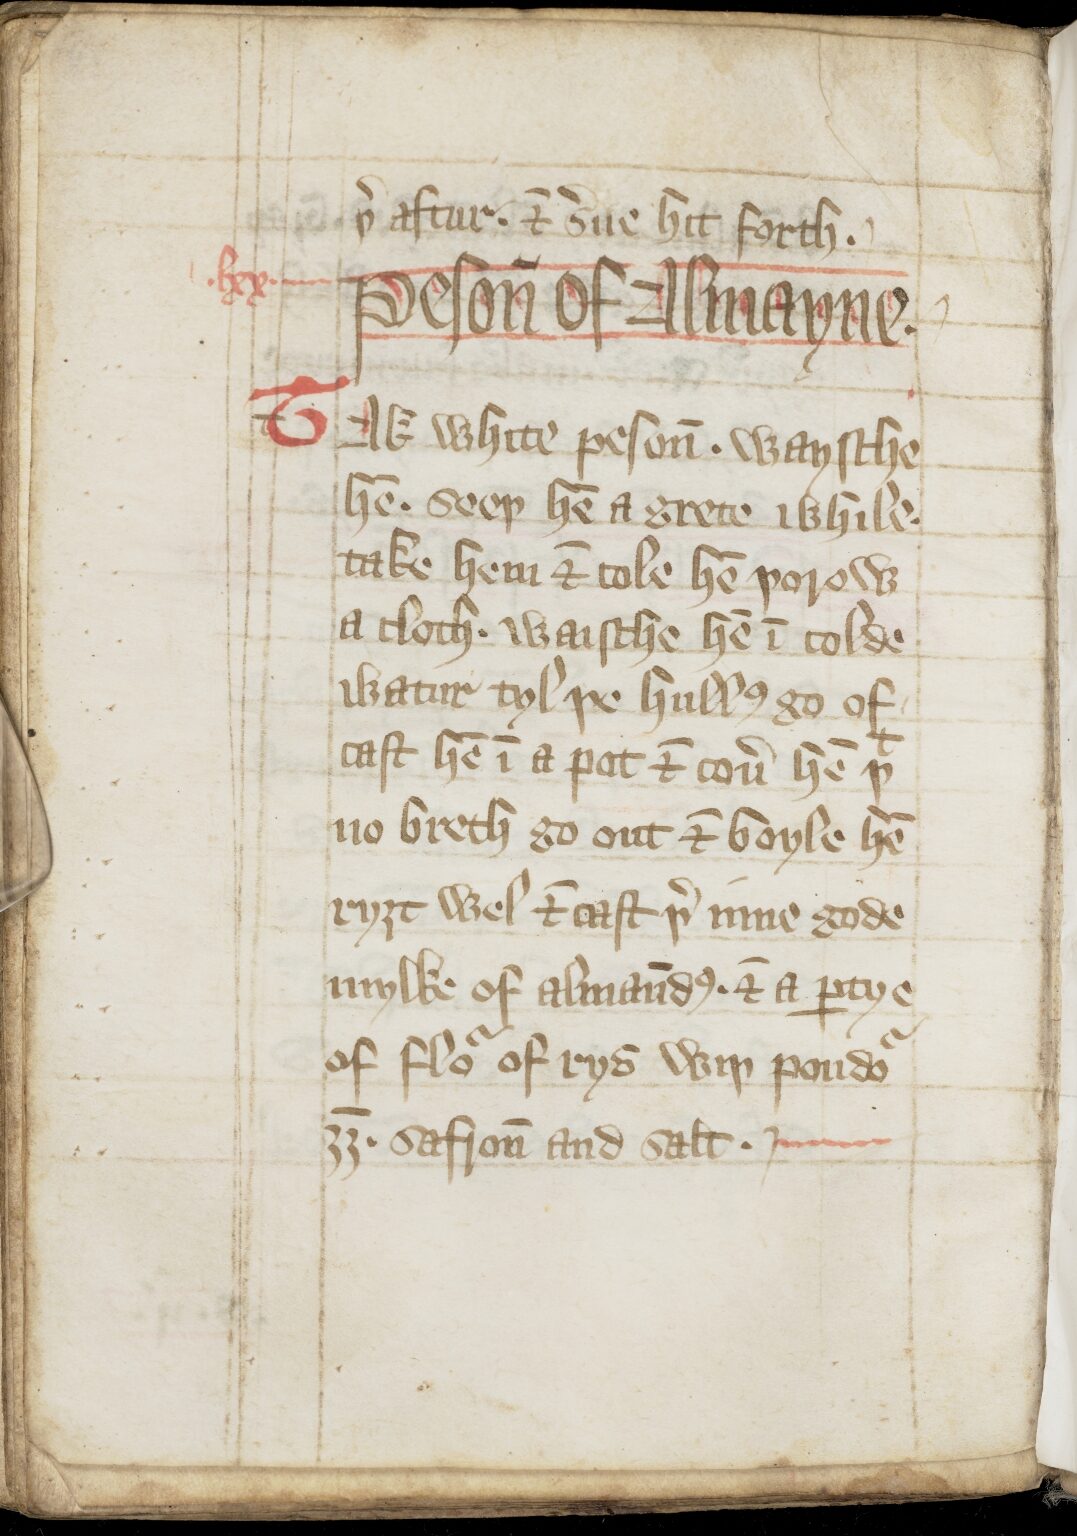 þ͛ aftur. ⁊ s͛ue hit forth.
.lxx.
Pesoñ of Almayne.
Tak white pesoñ. waysche
hē. seeþ hē a grete while.
take hem ⁊ cole hē þorow
a cloth. waische hē ī colde
watur tyl þe hullꝰ go of
cast hē ī a pot ⁊ cou͛ hē þᵗ
no breth go out ⁊ boyle hē
ryȝt wel ⁊ cast þ͛ inne gode
mylke of almaūdꝰ. ⁊ a ꝑtye
of floᷣ of rys wiþ poudoᷣ
ȝȝ̄. safroñ and salt.